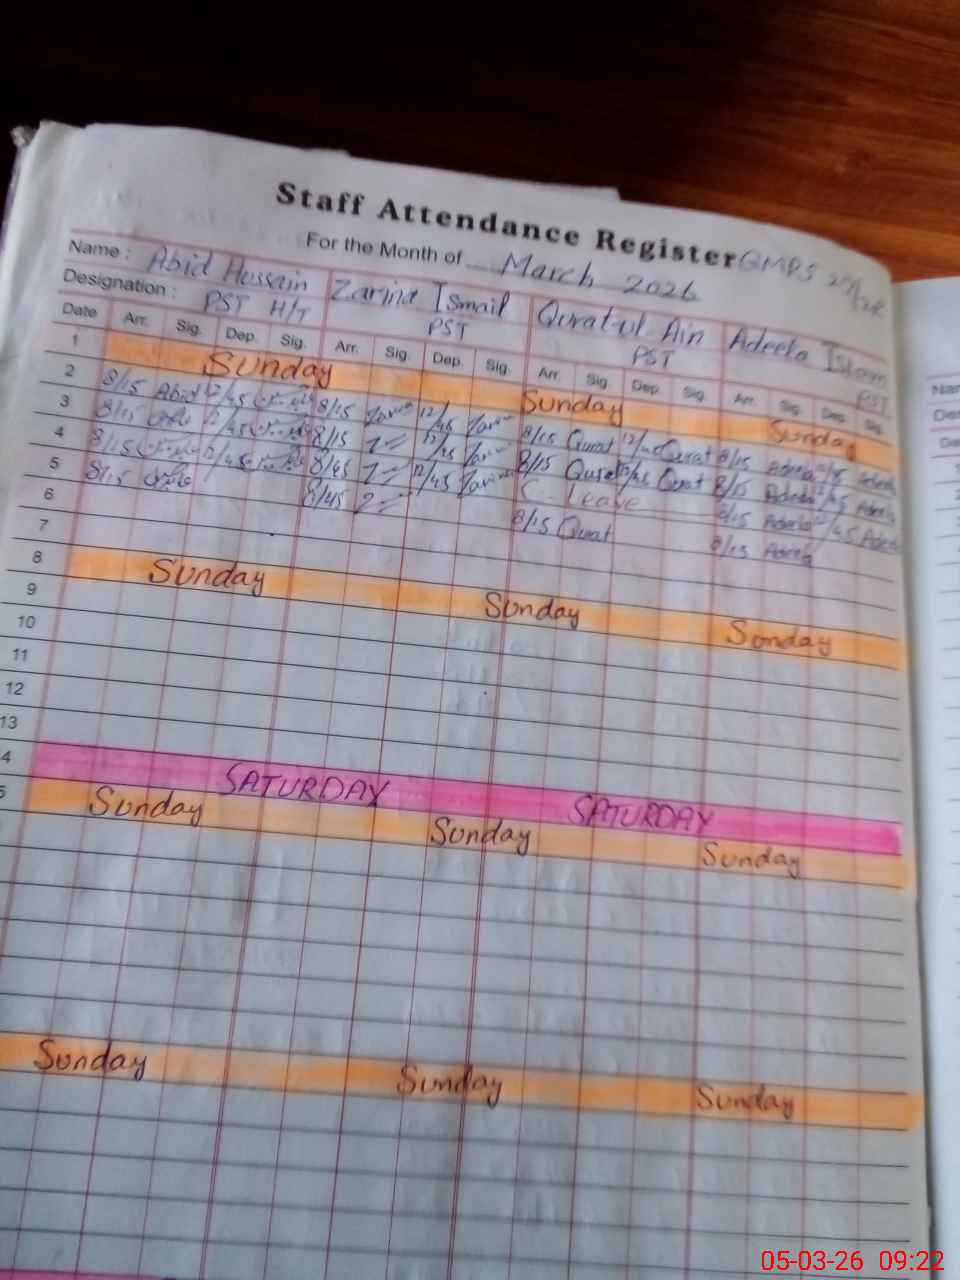 Staff Attendance Register GMPS
For the Month of March 2026
Name : Abid Hussain Zarina Ismail Qurat-ul Ain Adeela Islam
Designation : PST H/T PST PST PST
Date Arr. Sig. Dep. Sig. Arr. Sig. Dep. Sig. Arr. Sig. Dep. Sig. Arr. Sig. Dep. Sig.
1 Sunday Sunday Sunday
2 8/15 Abid 12/45 8/15 Zarina 12/45 8/15 Qurat 12/45 Qurat 8/15 Adeela 12/45 Adeela
3 8/15 12/45 8/15 12/45 8/15 Qurat 12/45 Qurat 8/15 Adeela 12/45 Adeela
4 8/15 12/45 8/45 12/45 C. Leave 8/15 Adeela 12/45 Adeela
5 8/15 8/45 8/15 Qurat 8/15 Adeela
6
7
8 Sunday Sunday Sunday
9
10
11
12
13
4 SATURDAY SATURDAY
5 Sunday Sunday Sunday
Sunday Sunday Sunday
05-03-26 09:22